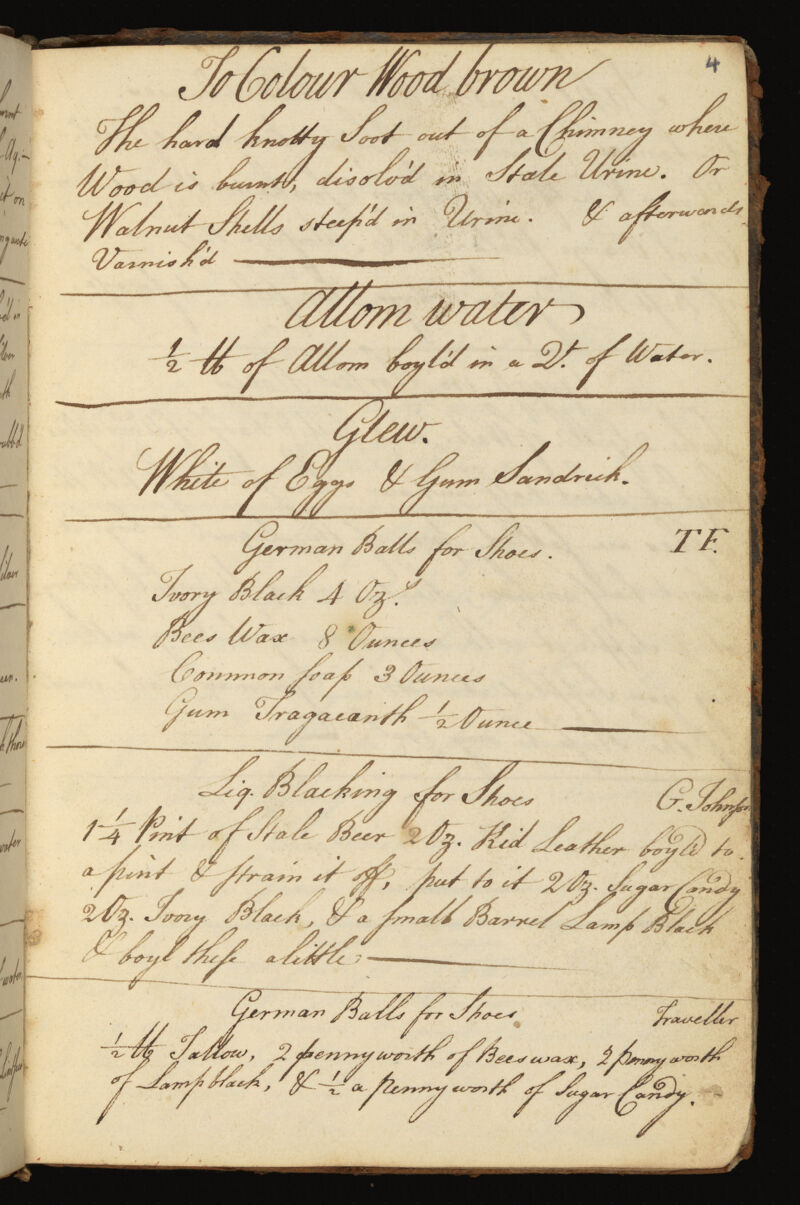 4
To Colour Wood brown
The hard knotty Soot out of a Chimney where
Wood is burnt, disolv'd in Stale Urine. Or
Walnut Shells steep'd in Urine. & afterwards
Varnish'd
Allom water
½ ℔ of Allom boyl'd in a Qt. of Water.
Glew.
White of Eggs & Gum Sandrich.
German Balls for Shoes. T F.
Ivory Black 4 Ozs.
Bees Wax 8 Ounces
Common soap 3 Ounces
Gum Tragacanth ½ Ounce
Liq. Blacking for Shoes G. Johnson
1 ¼ Pint of Stale Beer 2 Oz. Kid Leather boyl'd to
a pint & strain it off, put to it 2 Oz. Sugar Candy
2 Oz. Ivory Black, & a small Barrel Lamp Black
& boyl these a little
German Balls for Shoes Traveller
½ ℔ Tallow, 2 pennyworth of Beeswax, 2 pennyworth
of Lampblack, & ½ a pennyworth of Sugar Candy.